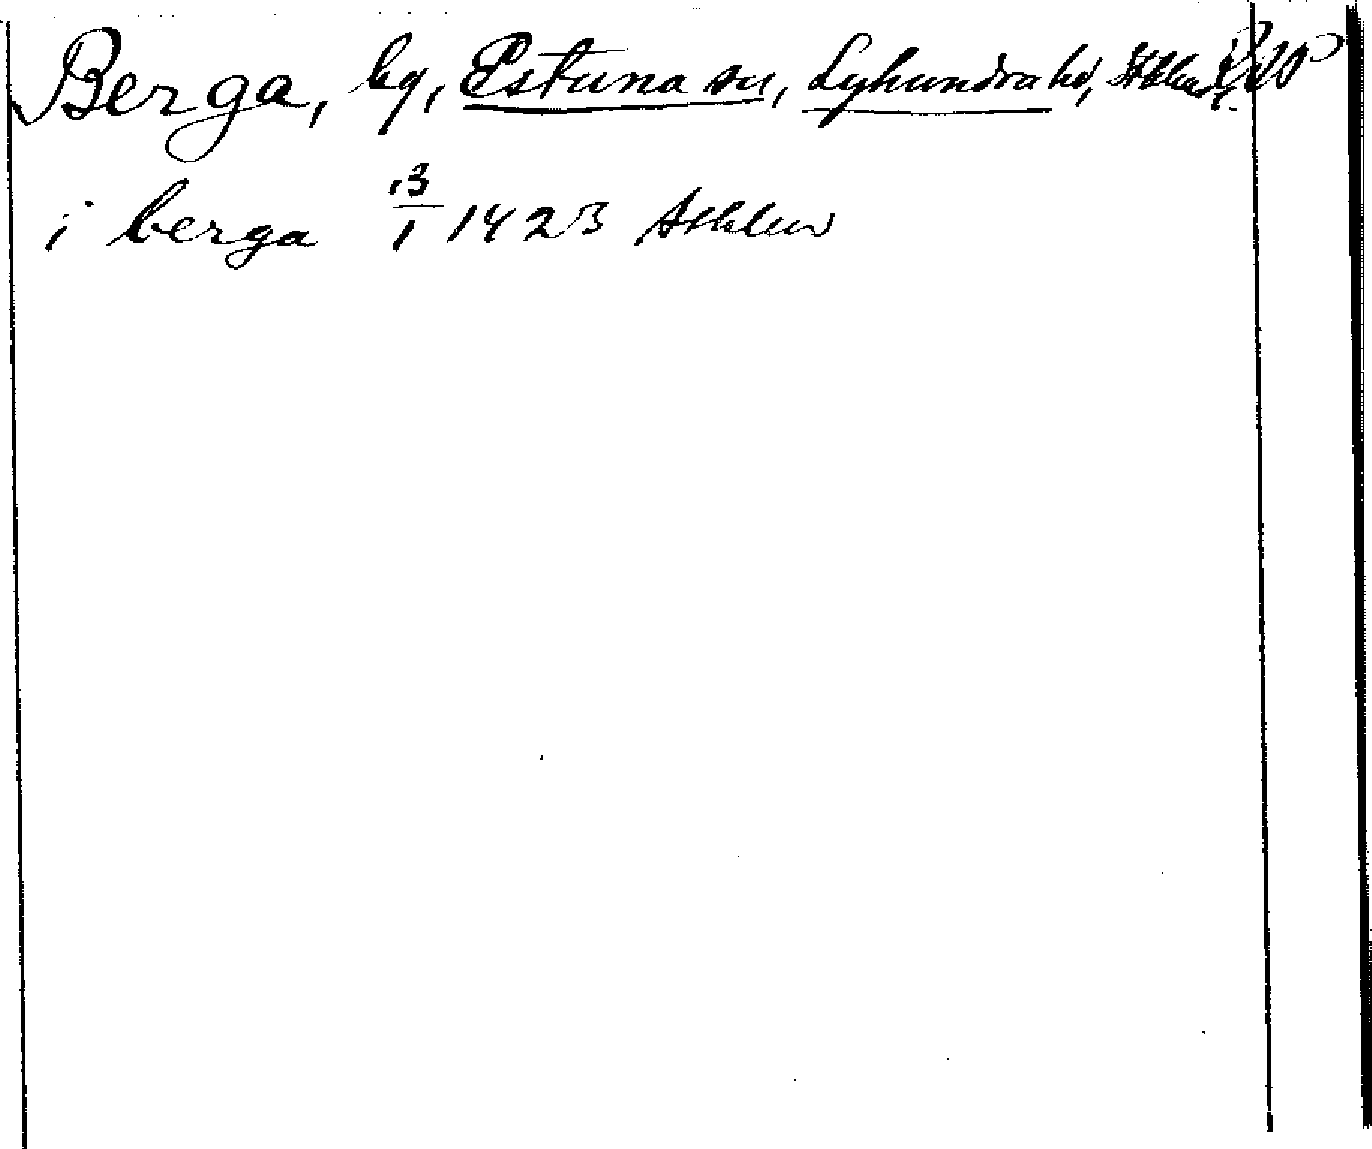 Berga, by, Estuna sn, Lyhundra hd, Sthlms l.
i berga 13/1 1423 Sthlm